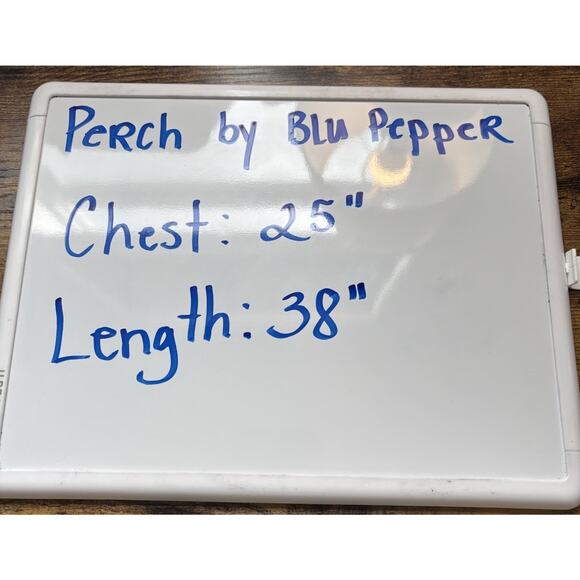 Perch by Blu Pepper
Chest: 25"
Length: 38"